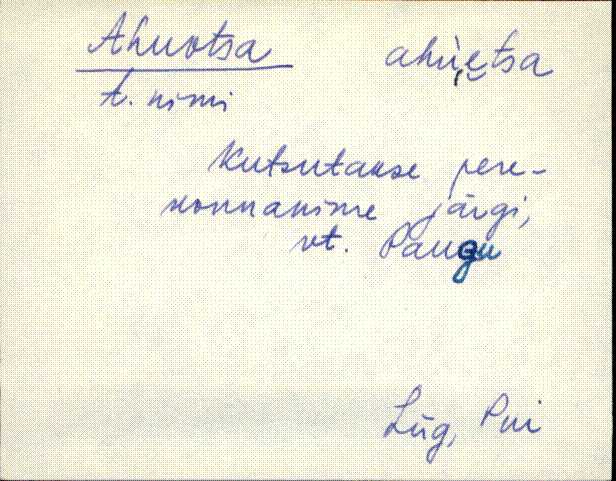 Ahuotsa ahùetsa
t. nimi
Kutsutakse pere-
konnanime järgi,
vt. Paugu
Lüg, Pui